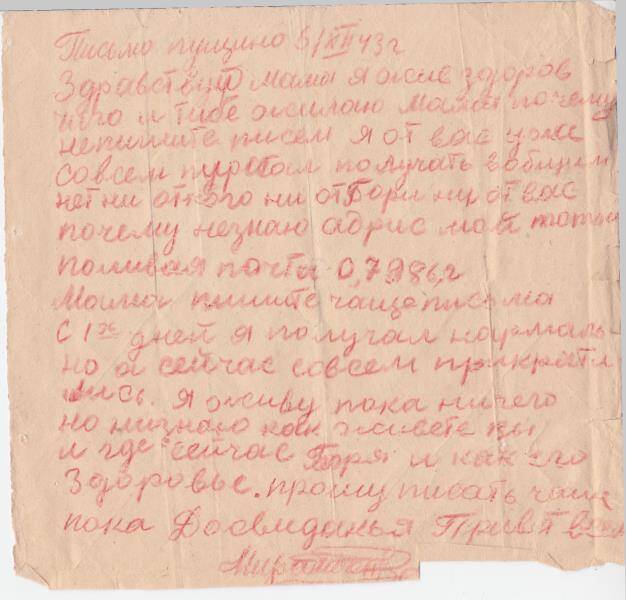 Письмо пущино 5/XII 43 г
Здравствуй мама я жив здоров
чего и тибе жилаю Мама почему
непишите писем я от вас уже
совсем пирестал получать вобщим
нет ни от кого ни от Бори ни от вас
почему незнаю адрис мой тот
поливая почта 07986,г
Мама пишите чаще письма
С 1ых дней я получал нармаль-
но а сейчас совсем прикрати
лись. я живу пока ничего
но низнаю как живете вы
и где сейчас Боря и как его
Здоровье. прошу писать чаще
пока Досвиданья Привет всем